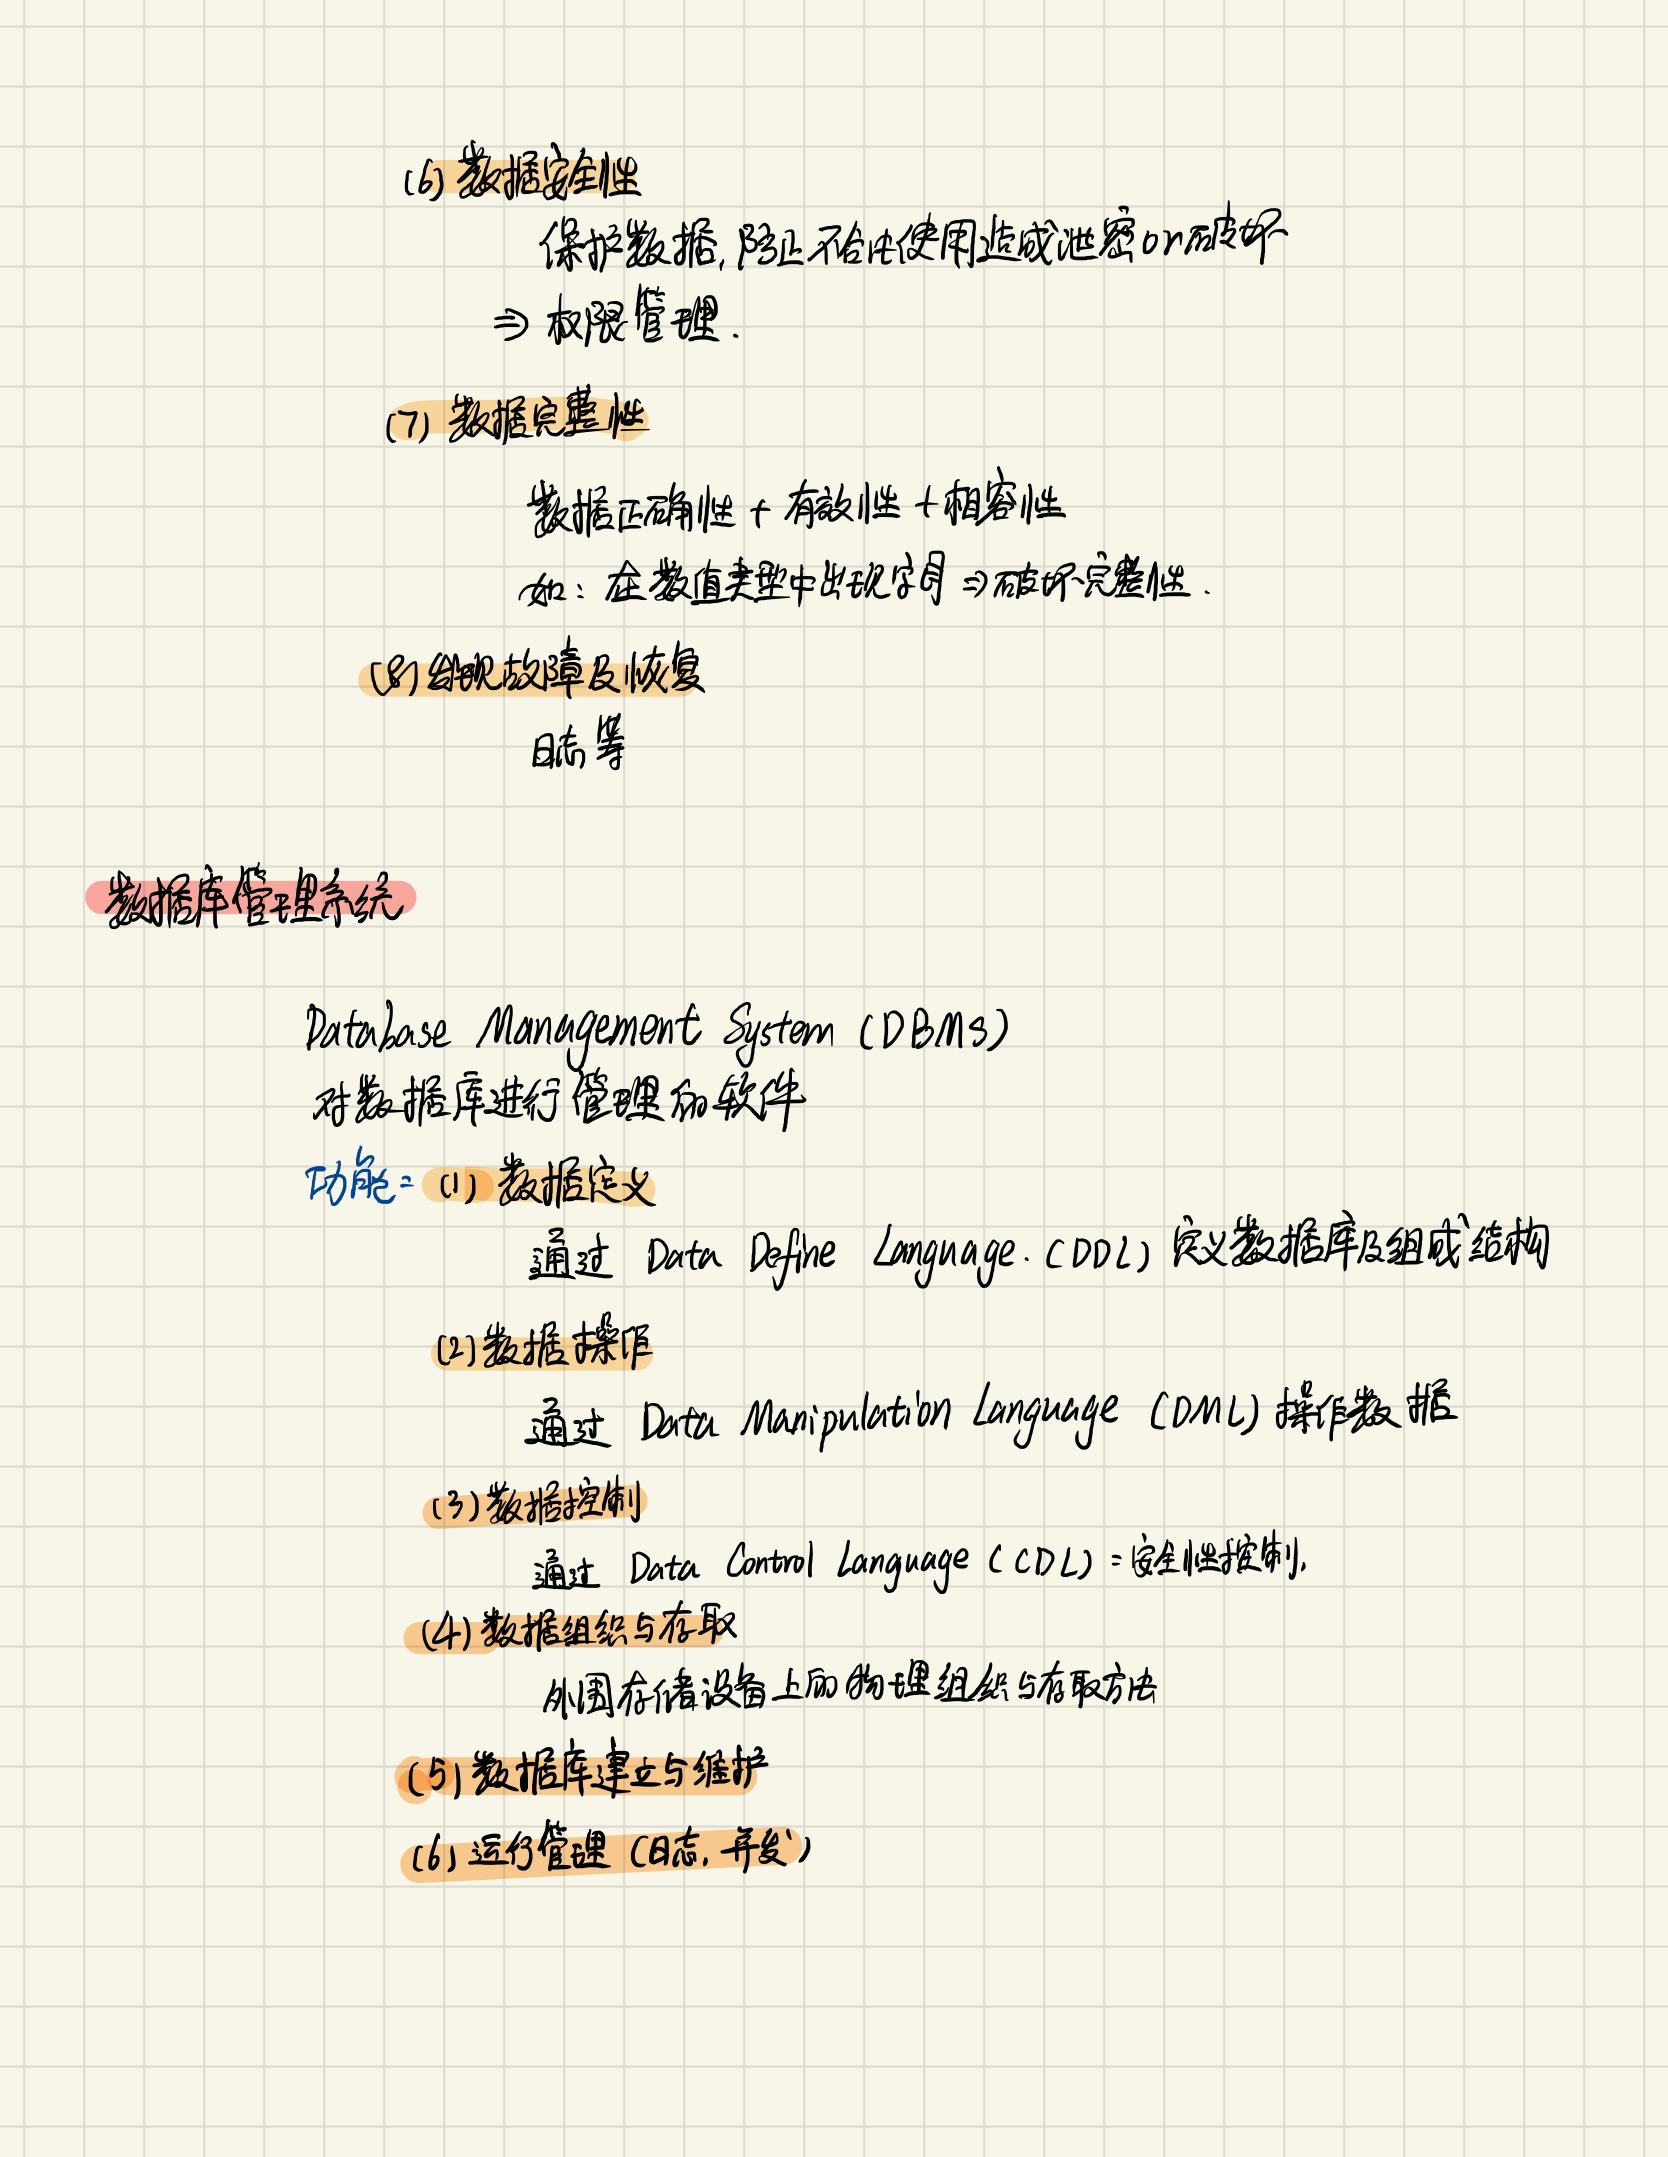 (6) 数据安全性
保护数据, 防止不合法使用造成泄密or破坏
⇒ 权限管理.
(7) 数据完整性
数据正确性 + 有效性 + 相容性
如: 在数值类型中出现字母 ⇒ 破坏完整性.
(8) 发现故障及恢复
日志等
数据库管理系统
Database Management System (DBMS)
对数据库进行管理的软件
功能: (1) 数据定义
通过 Data Define Language. (DDL) 定义数据库及组成结构
(2) 数据操作
通过 Data Manipulation Language (DML) 操作数据
(3) 数据控制
通过 Data Control Language (CDL): 安全性控制,
(4) 数据组织与存取
外围存储设备上的物理组织与存取方法
(5) 数据库建立与维护
(6) 运行管理 (日志, 并发)